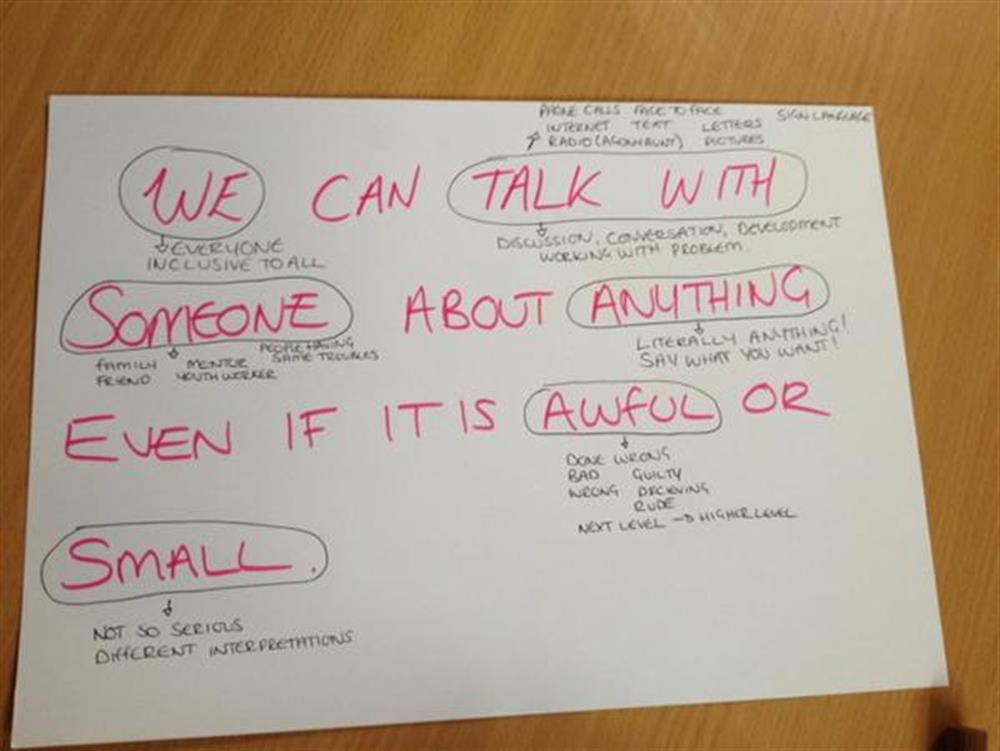 PHONE CALLS FACE TO FACE SIGN LANGUAGE
INTERNET TEXT LETTERS
RADIO (AGONY AUNT) PICTURES
WE CAN TALK WITH
EVERYONE
INCLUSIVE TO ALL
DISCUSSION, CONVERSATION, DEVELOPMENT
WORKING WITH PROBLEM.
SOMEONE ABOUT ANYTHING
PEOPLE HAVING
FAMILY MENTOR SAME TROUBLES
FRIEND YOUTH WORKER
LITERALLY ANYTHING!
SAY WHAT YOU WANT!
EVEN IF IT IS AWFUL OR
DONE WRONG
BAD GUILTY
WRONG DECIEVING
RUDE
NEXT LEVEL → HIGHER LEVEL
SMALL.
NOT SO SERIOUS
DIFFERENT INTERPRETATIONS